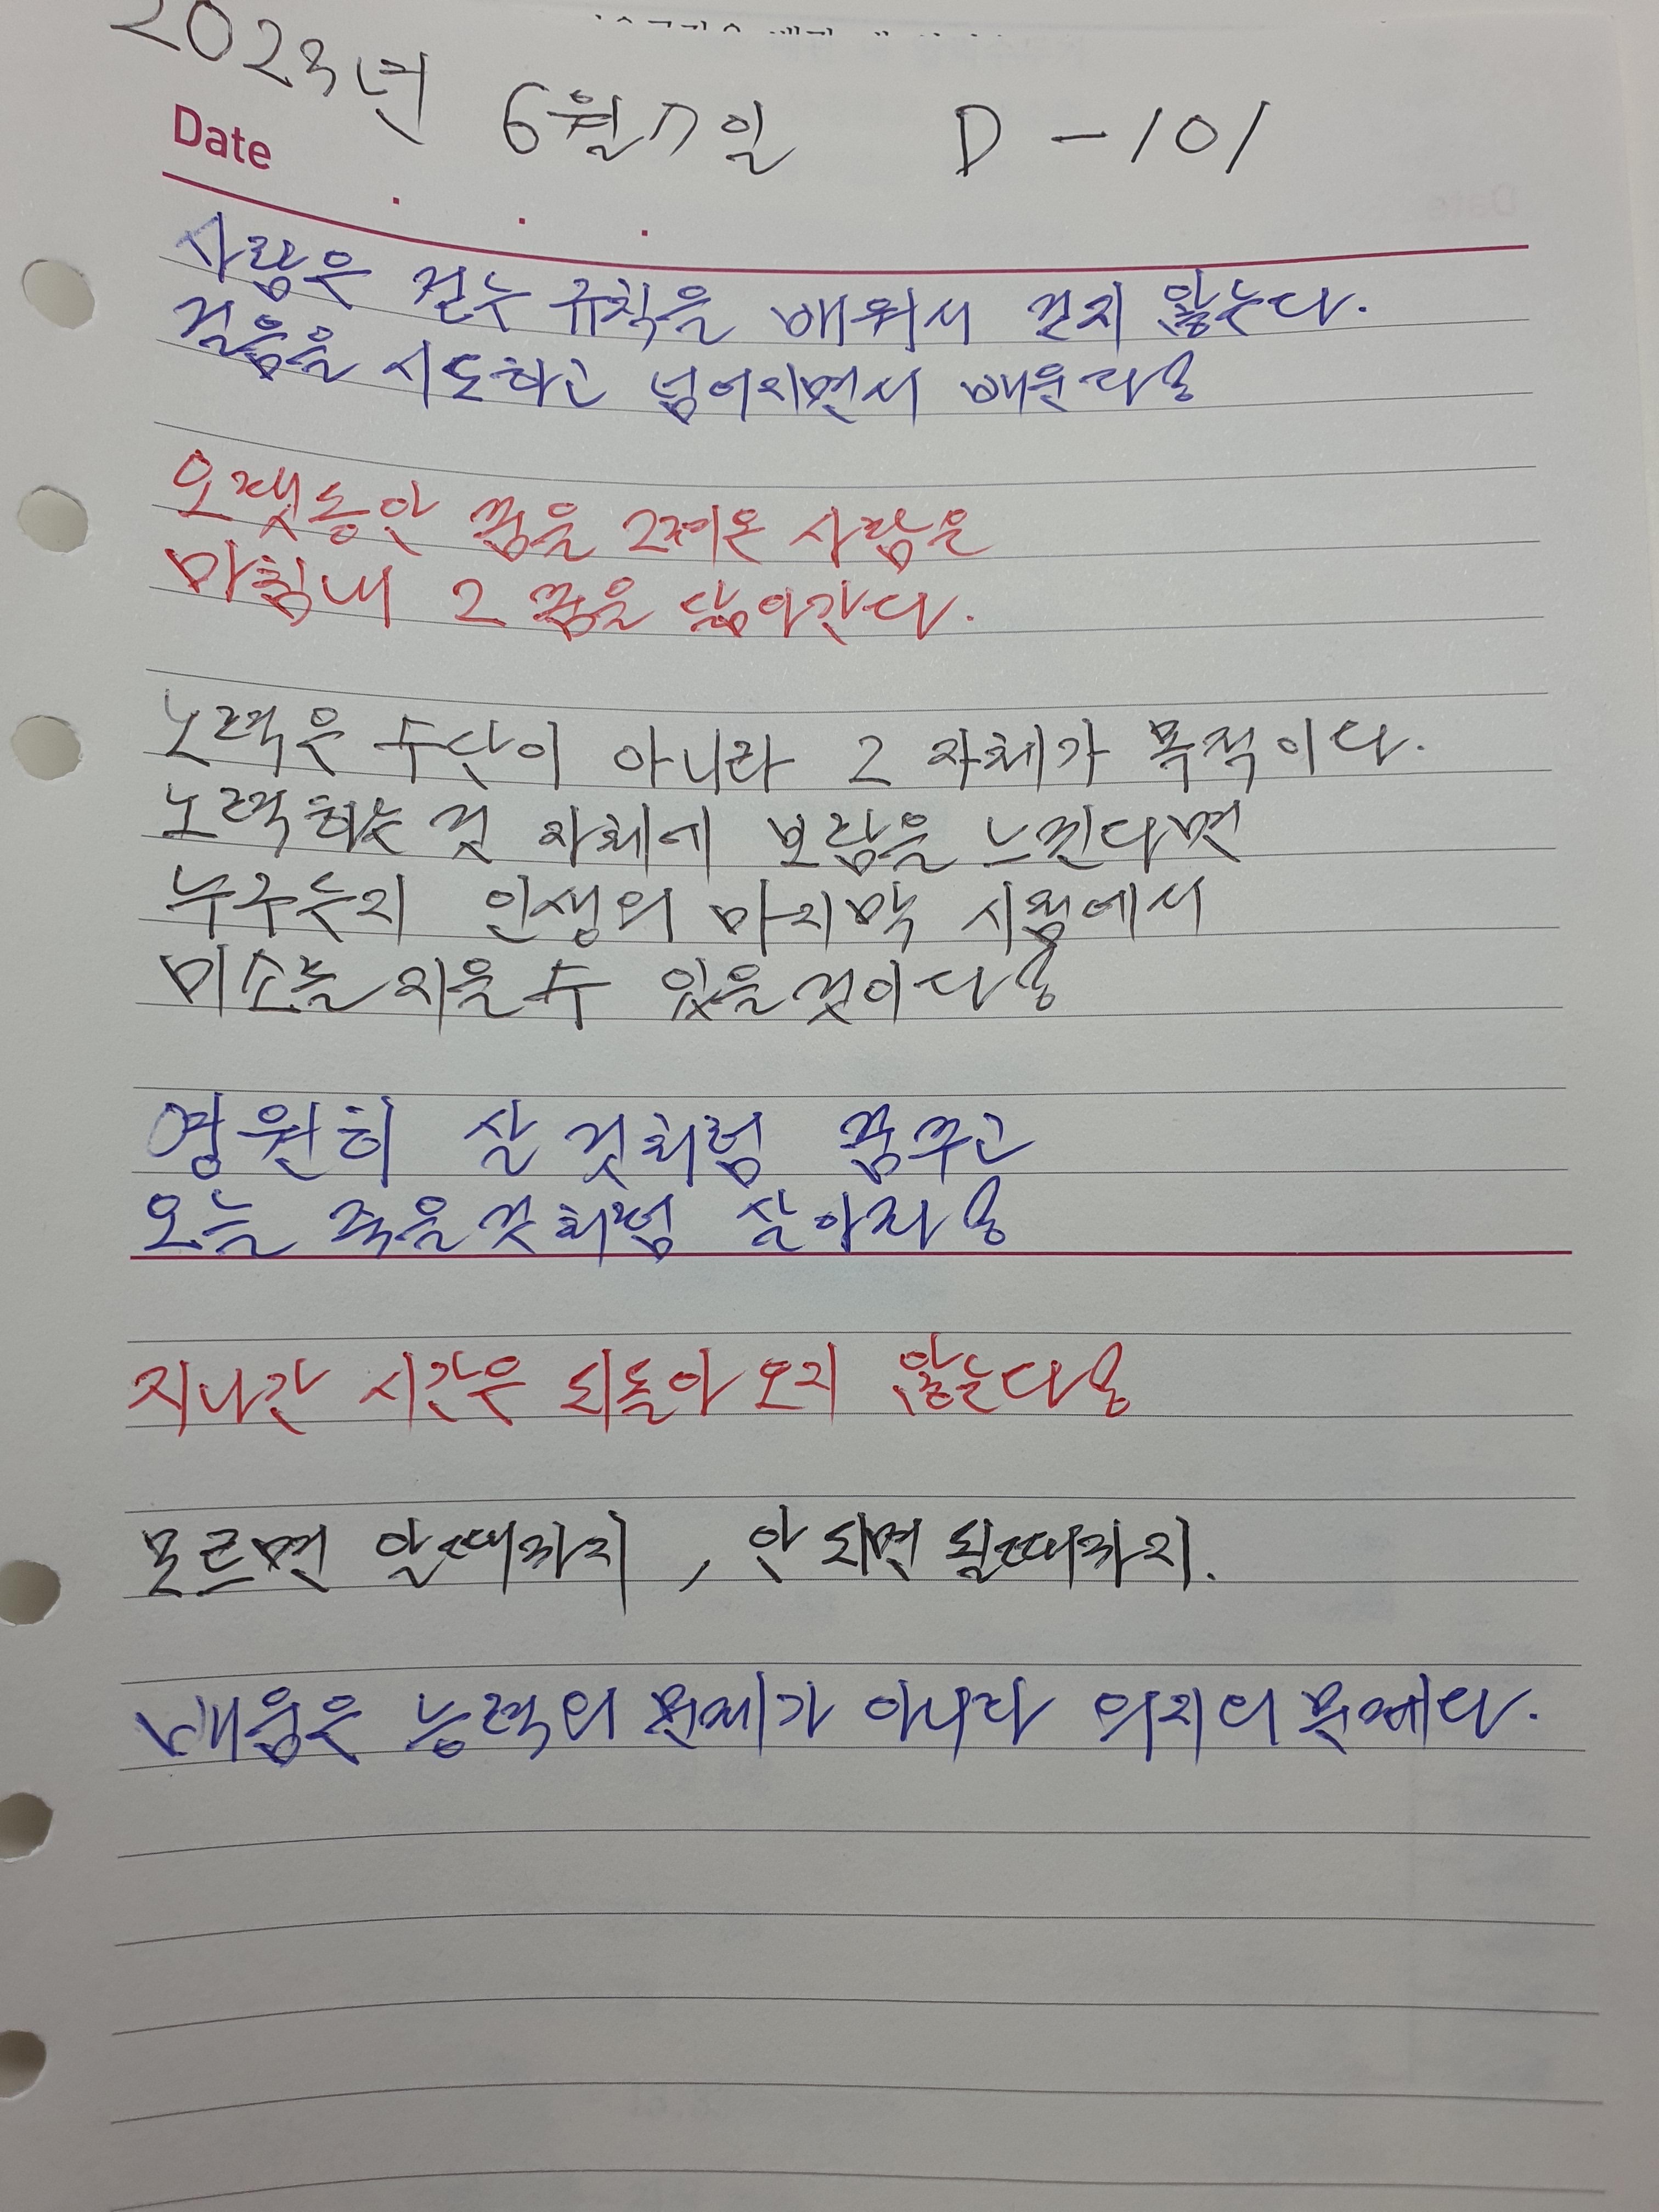 2023년 6월 7일 D-101
Date
사람은 걷는 규칙을 배워서 걷지 않는다.
걸음을 시도하고 넘어지면서 배운다.
오랫동안 꿈을 그려온 사람은
마침내 그 꿈을 닮아간다.
노력은 수단이 아니라 그 자체가 목적이다.
노력하는 것 자체에 보람을 느낀다면
누구든지 인생의 마지막 시점에서
미소를 지을 수 있을것이다.
영원히 살 것처럼 꿈꾸고
오늘 죽을것처럼 살아라.
지나간 시간은 되돌아 오지 않는다.
모르면 알때까지, 안 되면 될때까지.
배움은 능력의 문제가 아니라 의지의 문제다.